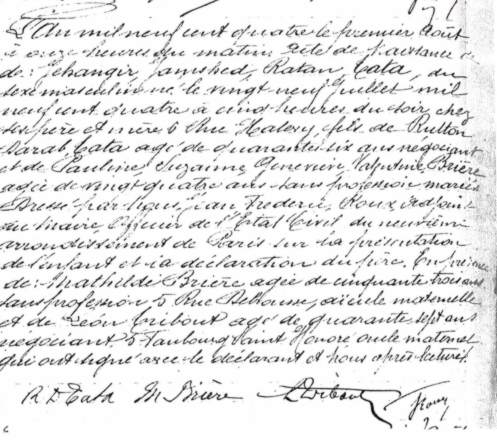 L'An mil neuf cent quatre le premier Août
à onze heures du matin Acte de Naissance
de: Jehangir, Jamshed, Ratan Tata, du
sexe masculin né le vingt neuf Juillet mil
neuf cent quatre à cinq heures du soir, chez
ses père et mère 6 Rue Halevy, fils de Rutton
Darab Tata agé de quarante six ans négociant
et de Pauline, Suzanne Genevieve Brière
agée de vingt quatre ans sans profession mariés
Dressé par Nous, Jean Frederic Roux, adjoint
du Maire, Officier de l'Etat Civil du neuvième
arrondissement de Paris sur la présentation
de l'enfant et la déclaration du père. En présence
de: Mathilde Brière agée de cinquante trois ans
sans profession 5 Rue aïeule maternelle
et de Léon Tribout agé de quarante sept ans
négociant Faubourg Saint Honoré oncle maternel
qui ont signé avec le déclarant et Nous après lecture.
R D Tata M Brière LTribout Roux